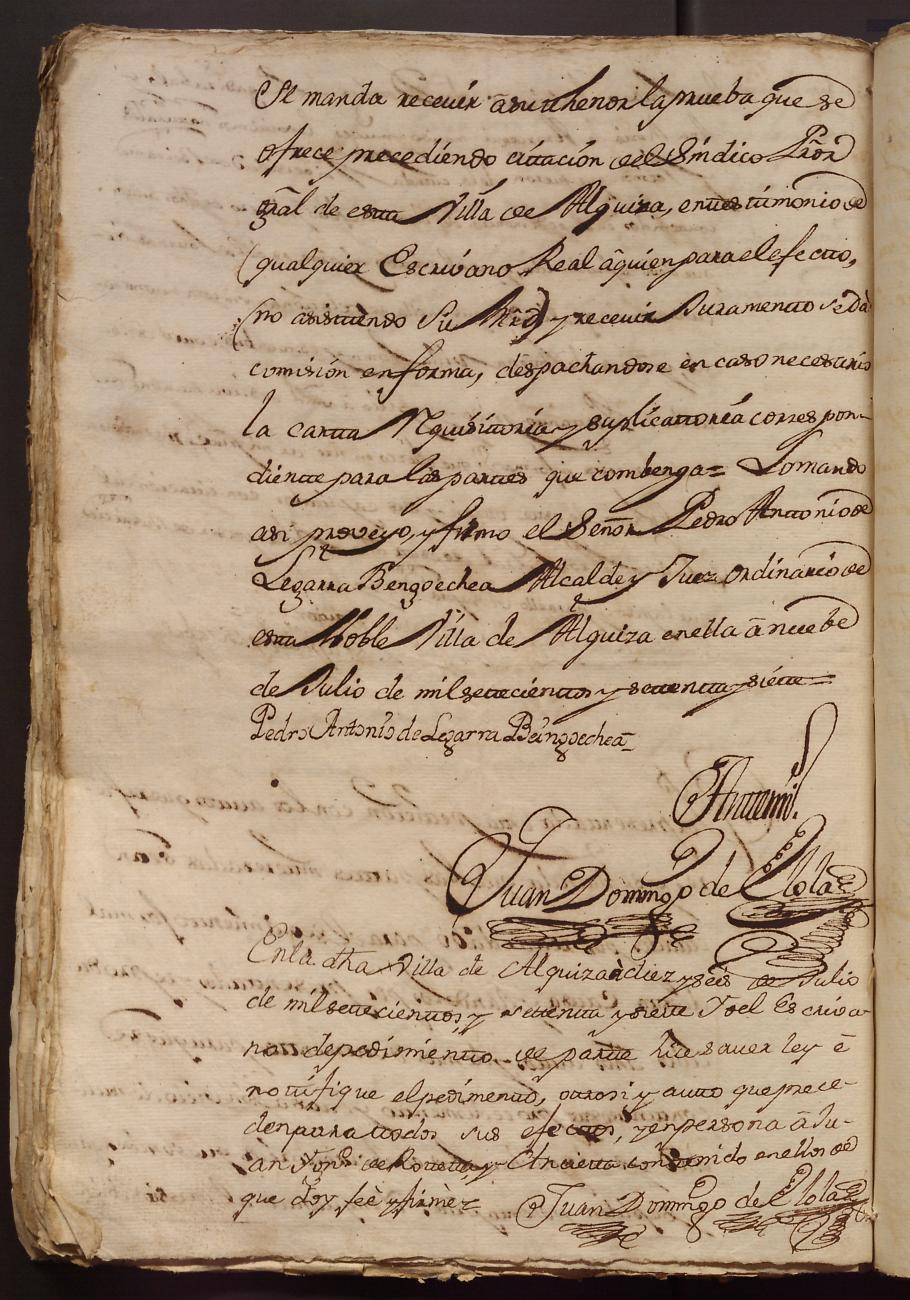 Se manda recevir â su thenor la prueba que se
ofrece precediendo cittación del Síndico Prõr
gr̃al de esta Villa de Alquiza, en testimonio de
(qualquier Escrivano Real âquien para el efecto,
(no asistiendo Su Mrd̃) y recevir Juramento se dà
comisión en forma, despachandose en caso necesario
la cartta Requisittoria y suplicattoria correspon-
diente para las partes que combenga= Lo mando
asi proveyo, y firmo el Señor Pedro Anttonio de
Legarra Bengoechea Alcalde y Juez ordinario de
esta Noble Villa de Alquiza en ella â nuebe
de Julio de mil settecientos y settenta y siette=
Pedro Antonio de Legarra Beingoechea
Antemi.
Juan Domingo de Elola
En la dha Villa de Alquiza â diez y seis de Julio
de mil settecientos, y settenta y siette Yo el Escriva-
no de pedimiento de parte hice saver ley ê
notifique el pedimento, otrosi y autto que prece-
den para ttodos sus efecttos, y en persona â Ju-
an de y Anciettta conttenido en ellos de
que doy feè y firmè=
Juan Domingo de Elola